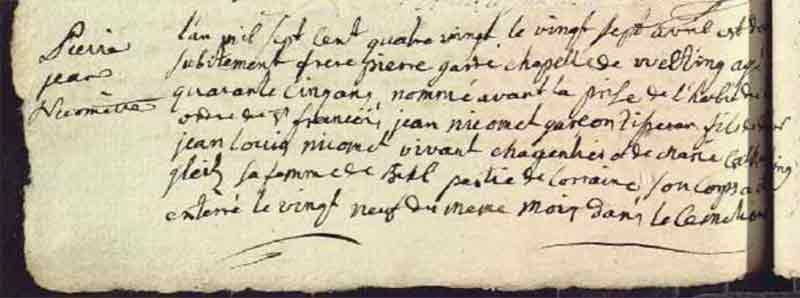 Pierre
jean
Nicomette
l'an mil sept cent quatre vingt le vingt sept avril est
subitement frere pierre garde chapelle de welting agé
quarante cinq ans, nommé avant la prise de l'habit
ordre de st françois jean nicomet garcon fils de
jean louis nicomet vivant chapentier et de marie Catherine
sa femme de partie de Lorraine, son corps a
enterré le vingt neuf du meme mois dans le